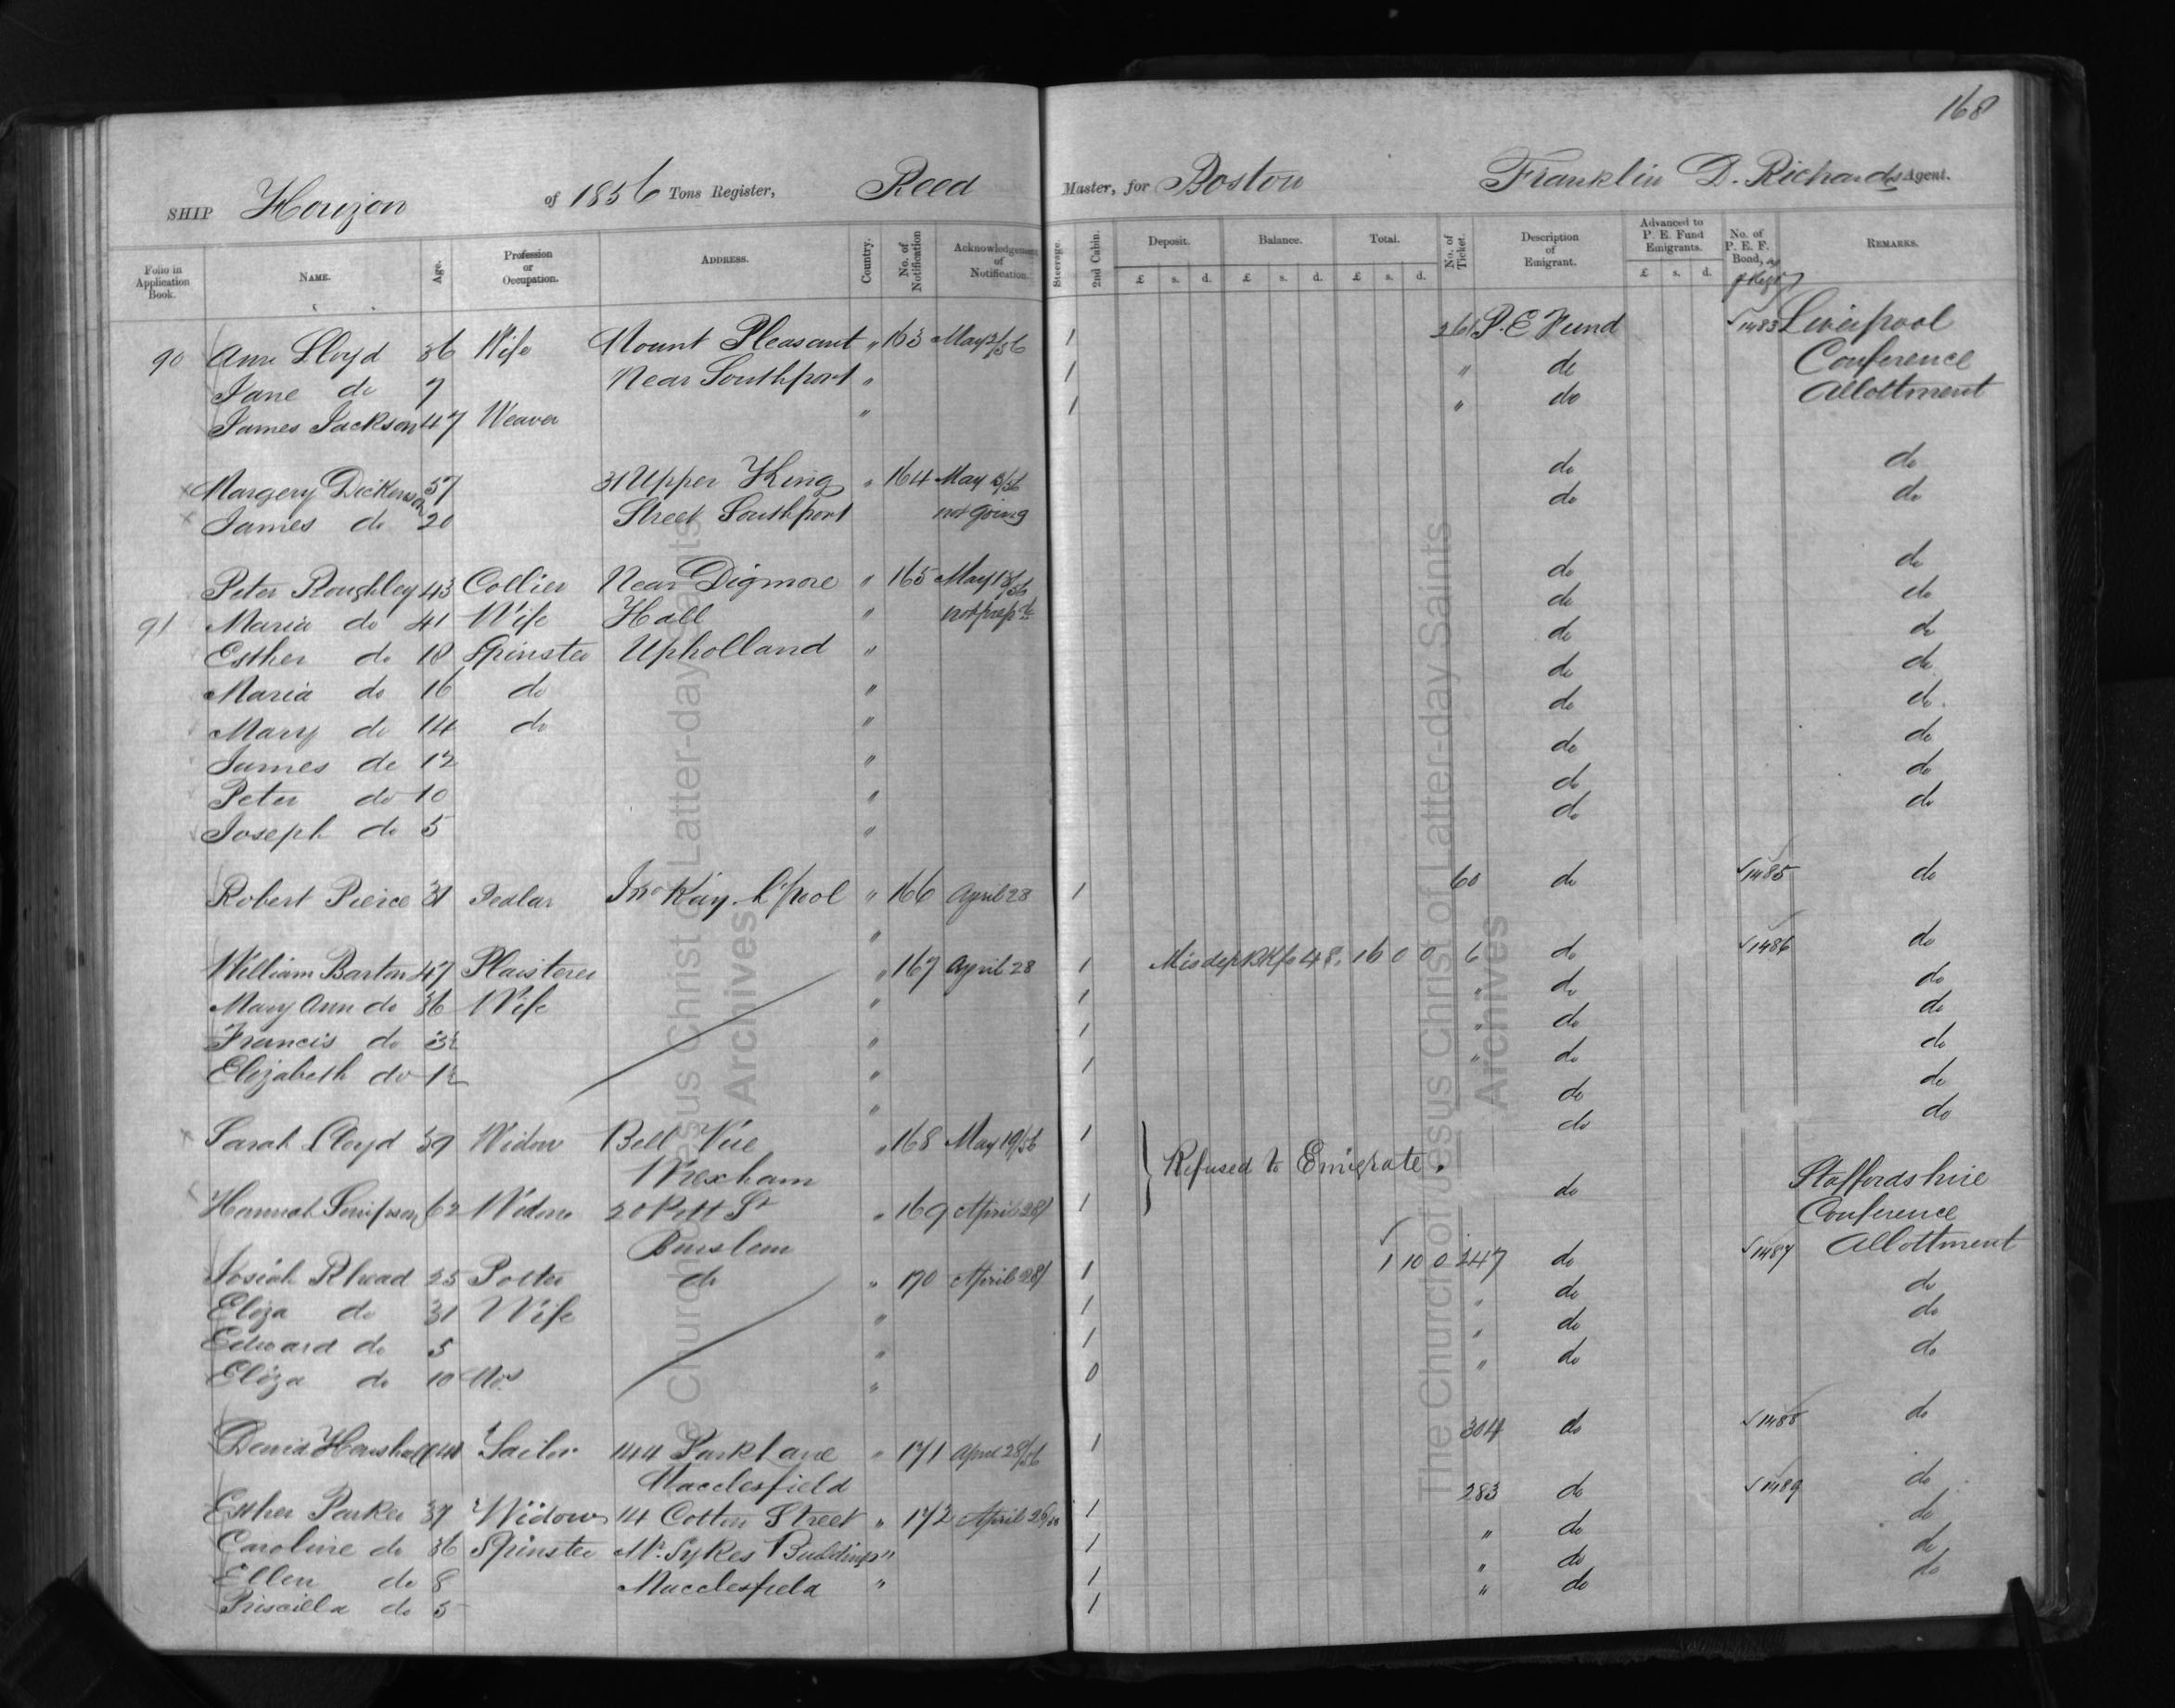 168
SHIP Horizon of 1856 Tons Register, Reed Master, for Boston Franklin D. Richards Agent.
Folio in Application Book. NAME. Age. Profession or Occupation. ADDRESS. Country. No. of Notification Acknowledgement of Notification. Steerage. 2nd Cabin. Deposit. Balance. Total. No. of Ticket. Description of Emigrant. Advanced to P. E. Fund Emigrants. No. of P. E. F. Bond, REMARKS.
£ s. d. £ s. d. £ s. d. £ s. d.
90 Ann Lloyd 36 Wife Mount Pleasant " 163 May 2/56 1 261 P. E Fund √1483 Liverpool
Jane do 7 Near Southport " 1 " do Conference
James Jackson 47 Weaver " 1 " do Allottment
x Margery Dickerson 57 31 Upper King " 164 May /56 do do
x James do 20 Street Southport not going do do
Peter Roughley 43 Collier Near Digmore " 165 May 13/56 do do
91 Maria do 41 Wife Hall " not prepd do do
Esther do 18 Spinster Upholland " do do
Maria do 16 do " do do
Mary do 14 do " do do
James do 12 " do do
Peter do 10 " do do
Joseph do 5 " do do
Robert Pierce 31 Pedlar Jno Kay L'pool " 166 April 28 1 60 do √1485 do
"
William Barton 47 Plaisterer " 167 April 28 1 Mis dep BK fo 48. 16 0 0 6 do √1486 do
Mary Ann do 36 Wife " 1 " do do
Francis do 3½ " 1 " do do
Elizabeth do 1½ " 1 " do do
" do do
x Sarah Lloyd 39 Widow Bell Vue " 168 May 19/56 1 do do
Wrexham } Refused to Emigrate.
Hannah Simpson 62 Widow 20 Pitt St " 169 April 28/ 1 do Staffordshire
Burslem Conference
Josiah Rhead 25 Potter do " 170 April 28/ 1 √ 1 10 0 247 do √1487 Allottment
Eliza do 31 Wife " 1 " do do
Edward do 5 " 1 " do do
Eliza do 10 Mos " 0 " do do
David Henshall 44 Tailor 144 Park Lane " 171 April 28/56 1 304 do √1488 do
Macclesfield
Esther Parker 39 Widow 14 Cotton Street " 172 April 28/56 1 283 do √1489 do
Caroline do 36 Spinster Mr. Sykes Buildings " 1 " do do
Ellen do 8 Macclesfield " 1 " do do
Priscilla do 5 1 " do do
The Church of Jesus Christ of Latter-day Saints
Archives
The Church of Jesus Christ of Latter-day Saints
Archives